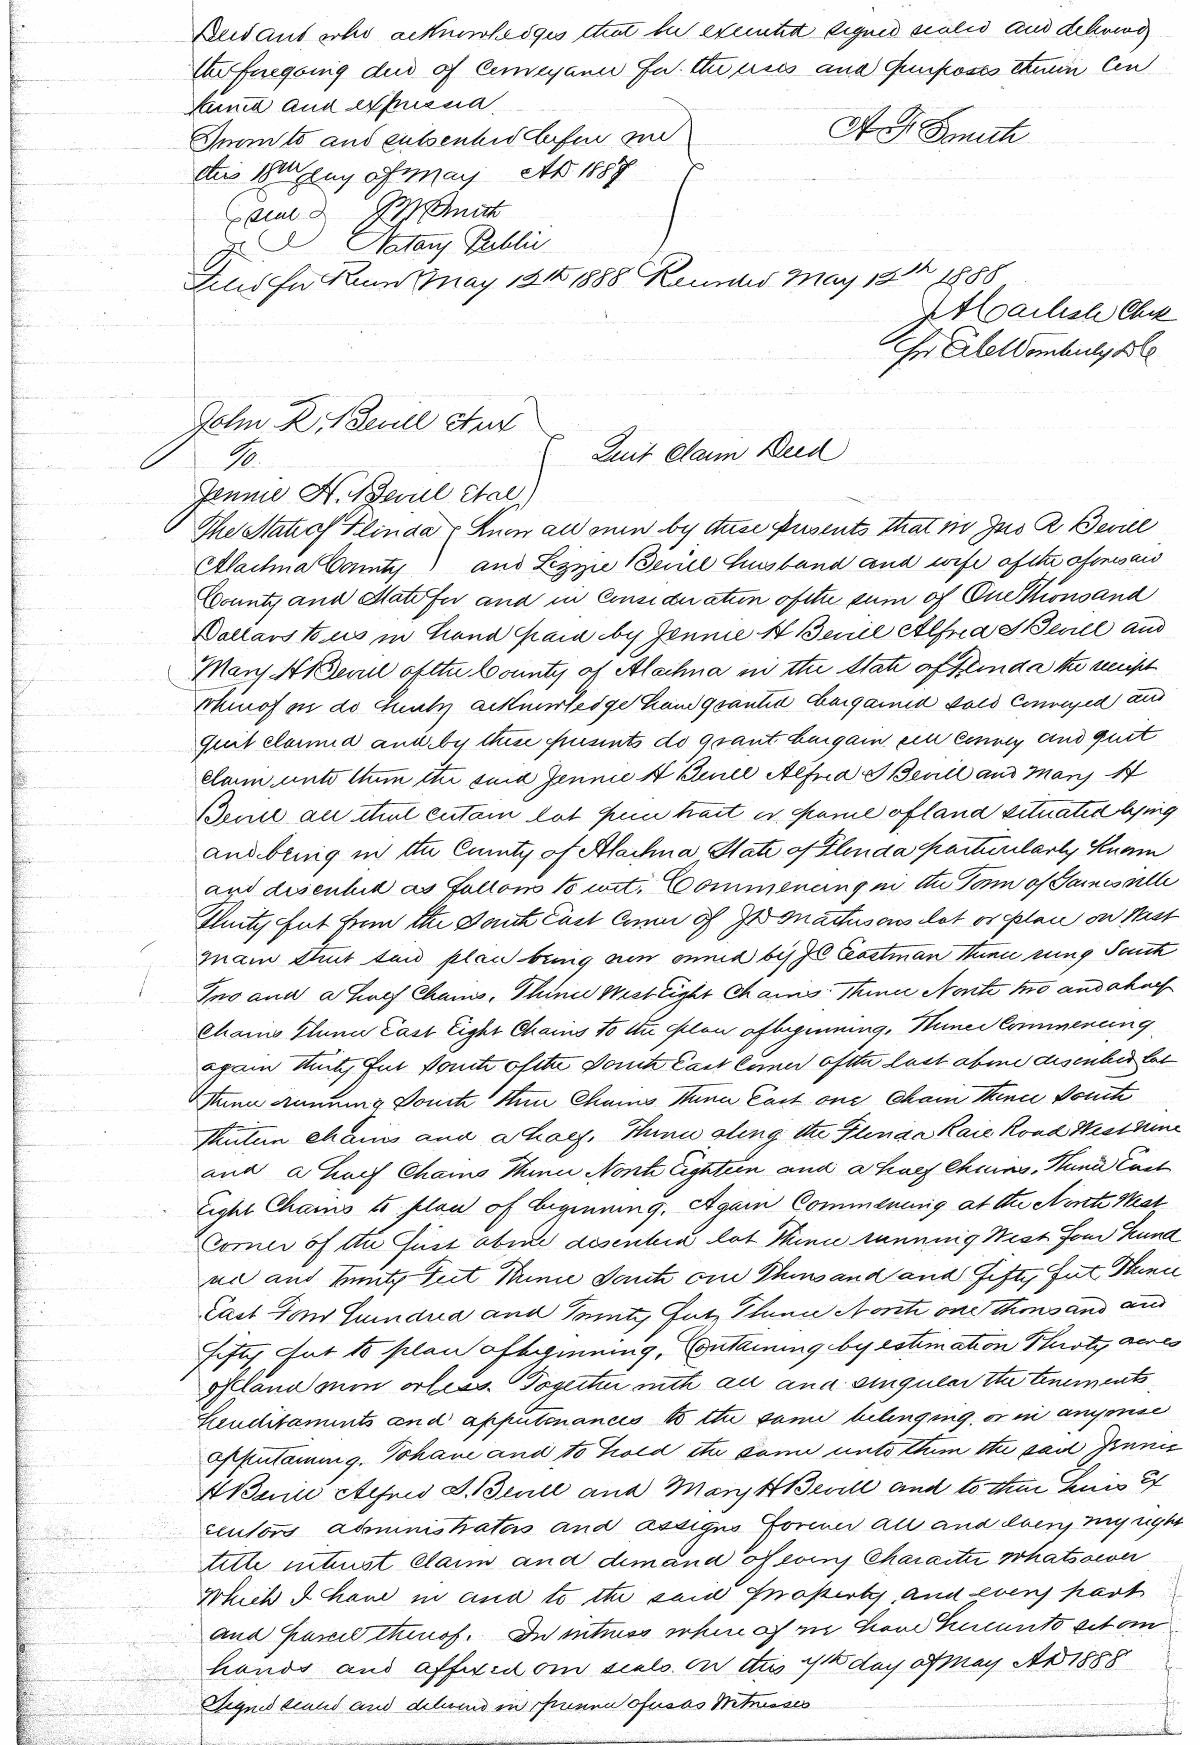 Deedant who acknowledges that he executed signed sealed and delivered
the foregoing deed of Conveyance for the uses and purposes therein Con
tained and expressed
Sworn to and subscribed before me
A F Smith
this 18th day of May AD 1887
(Seal) Smith
Notary Public
Filed for Record May 12th 1888 Recorded May 12th 1888
Clk
for
John R. Bevill et ux
To
Quit Claim Deed
Jennie H. Bevill et al
The State of Florida Know all men by these presents that we Jno R Bevill
Alachua County and Lizzie Bevill husband and wife of the aforesaid
County and State for and in Consideration of the sum of One Thousand
Dollars to us in hand paid by Jennie H Bevill Alfred S Bevill and
Mary H Bevill of the County of Alachua in the State of Florida the receipt
whereof we do hereby acknowledge have granted bargained sold conveyed and
quit claimed and by these presents do grant bargain sell convey and quit
claim unto them the said Jennie H Bevill Alfred S Bevill and Mary H
Bevill all that certain lot piece tract or parcel of land situated lying
and being in the County of Alachua State of Florida particularly known
and described as follows to wit. Commencing in the Town of Gainesville
Thirty feet from the South East Corner of J D Mathesons lot or place on West
main Street said place being now owned by J C Eastman thence rung South
Two and a half Chains. Thence West Eight Chains Thence North two and a half
Chains Thence East Eight Chains to the place of beginning. Thence Commencing
again thirty feet South of the South East Corner of the last above described lot
thence running South three Chains Thence East one Chain thence South
thirteen chains and a half. Thence along the Florida Rail Road West Nine
and a half Chains Thence North Eighteen and a half Chains. Thence East
Eight Chains to place of beginning. Again Commencing at the North West
Corner of the first above described lot Thence running West four hund
red and twenty Feet Thence South one Thousand and fifty feet Thence
East Four hundred and Twenty feet Thence North one thousand and
fifty feet to place of beginning. Containing by estimation Thirty acres
of land more or less. Together with all and singular the tenements
hereditaments and appurtenances to the same belonging or in anywise
appertaining. To have and to hold the same unto them the said Jennie
H Bevill Alfred S. Bevill and Mary H Bevill and to their heirs Ex
ecutors administrators and assigns forever all and every my right
title interest claim and demand of every Character whatsoever
which I have in and to the said property and every part
and parcel thereof. In witness where of we have hereunto set our
hands and affixed our seals on this 7th day of May AD 1888
Signed sealed and delivered in presence of us as Witnesses